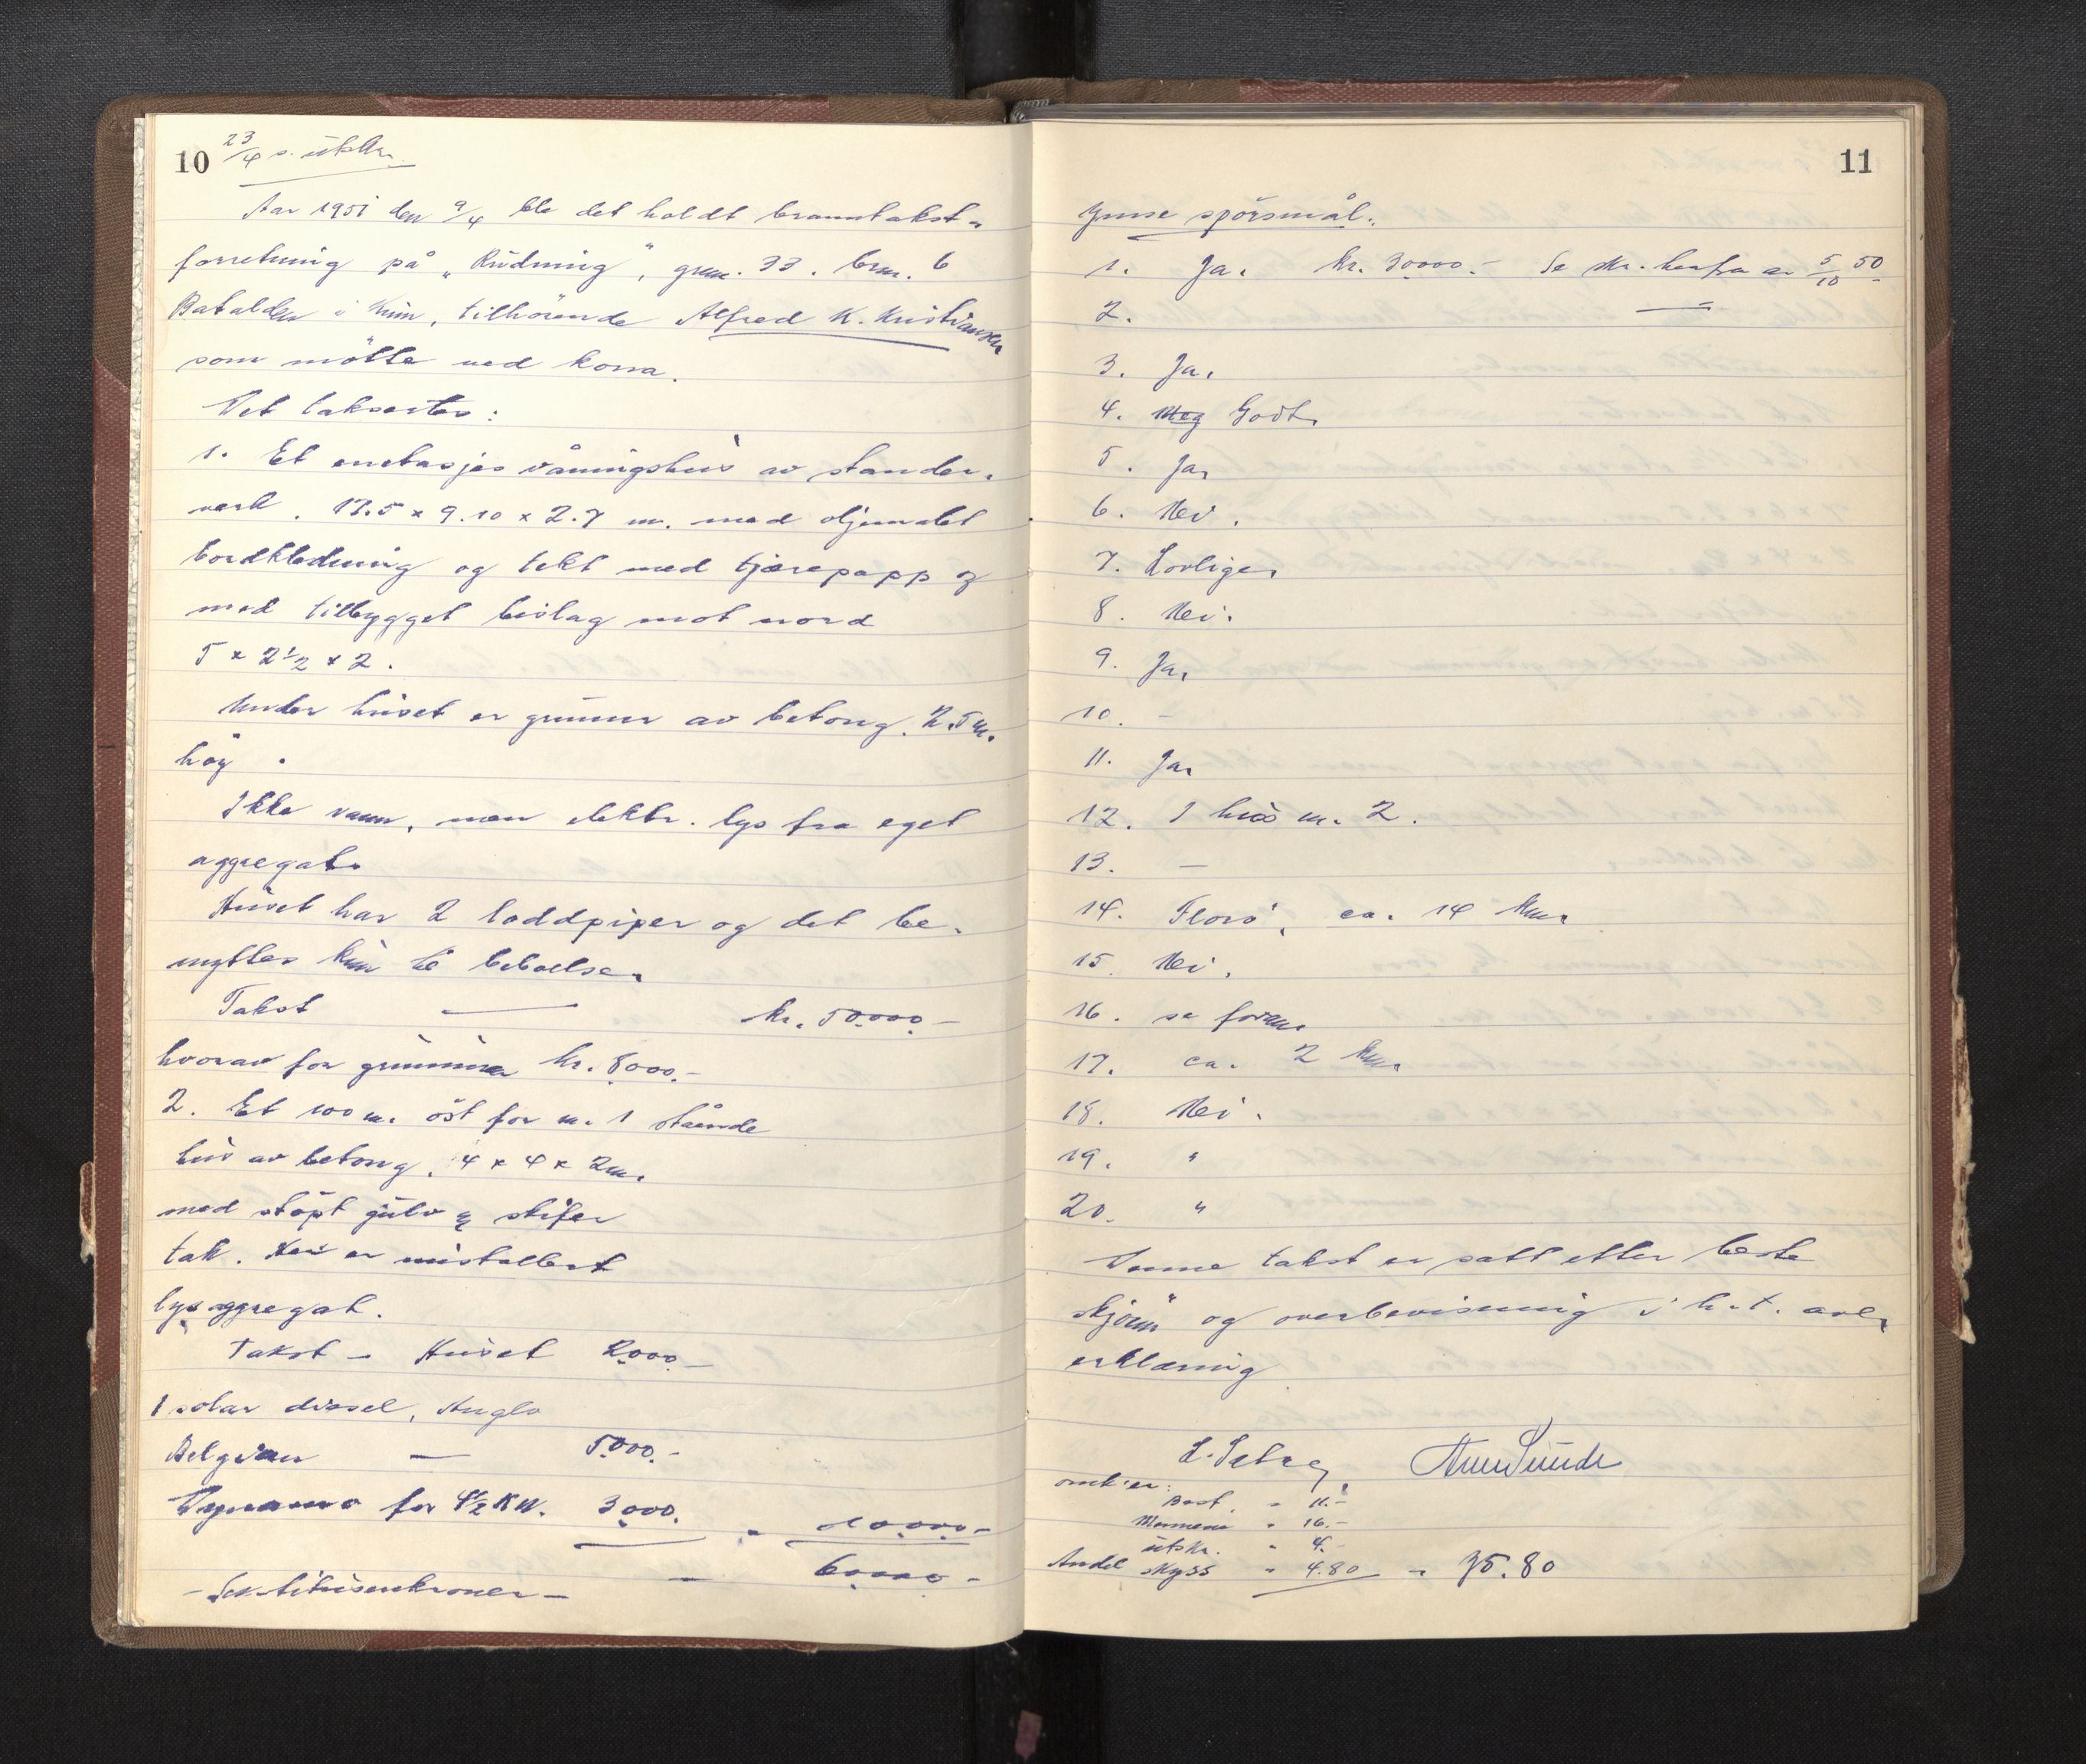 10 23/4 s. utskr.
Aar 1951 den 9/4 ble det holdt branntakst-
forretning på "Rudning", gnr. 33. brn. 6
Batalden i Kinn, tilhörende Alfred K. Kristiansen
som mötte ved kona.
Det takseres:
1. Et enetasjes våningshus av stender-
verk. 13.5 x 9.10 x 2.7 m. med oljemalet
bordkledning og tekt med tjærepapp og
med tilbygget bislag mot nord
5 x 2 1/2 x 2.
Under huset er grunnmur av betong. 2.5 m.
höy.
Ikke vann, men elektr. lys fra eget
aggregat.
Huset har 2 loddpiper og det be-
nyttes kun til beboelse.
Takst — kr. 50.000.-
hvorav for grunnmur kr. 8000.-
2. Et 100 m. öst for nr. 1 stående
hus av betong. 4 x 4 x 2 m.
med stöpt gulv og skifer
tak. Her er installert
lysaggregat.
Takst - Huset 2.000.-
1 solar diesel, Anglo
Belgian — 5.000.-
Dynamo for 4 1/2 KW. 3.000. - 10.000.-
- Sekstitusenkroner - - 60.000.-
11
Ymse spörsmål.
1. Ja. Kr. 30.000.- Se skr. herfra av 5/10 50
2. —
3. Ja.
4. Meg Godt.
5. Ja.
6. Nei.
7. Lovlige.
8. Nei.
9. Ja.
10. -
11. Ja.
12. I hus nr. 2.
13. —
14. Florö, ca. 14 km.
15. Nei.
16. se foran.
17. ca. 2 km.
18. Nei.
19. "
20. "
Denne takst er satt etter beste
skjönn og overbevisning i h.t. avl.
erklæring
omk.er:
Best. - 11.-
- 16.-
utskr. - 4.-
Andel skyss - 4.80 - 35.80